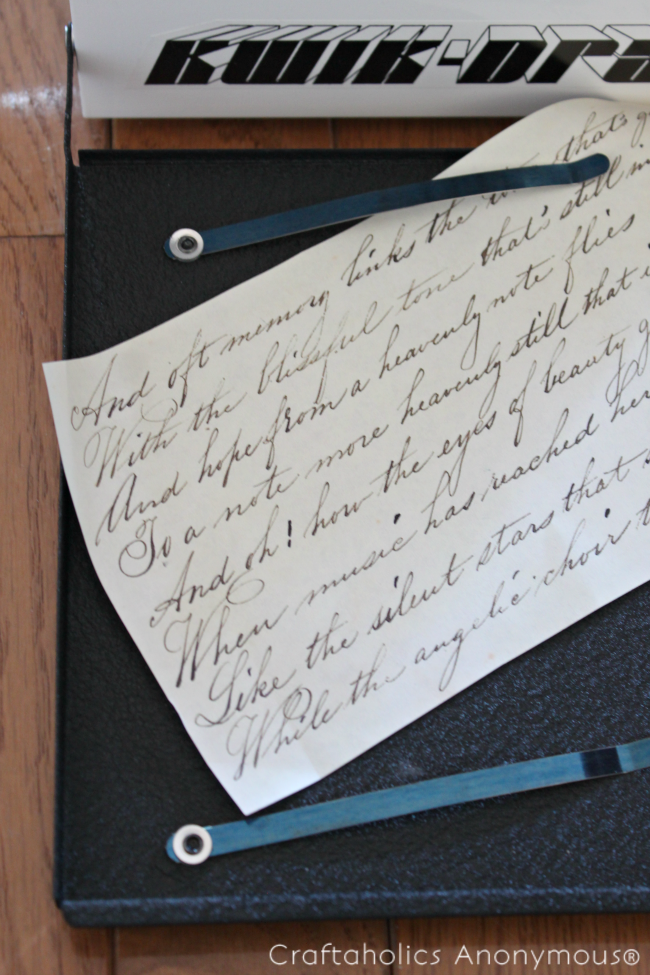 KWIK-DRA
And oft memory links the that's
With the blissful tone that's still
And hope from a heavenly note flies
To a note more heavenly still that
And oh! how the eyes of beauty
When music has reached her
Like the silent stars that
While the angelic choir
Craftaholics Anonymous®